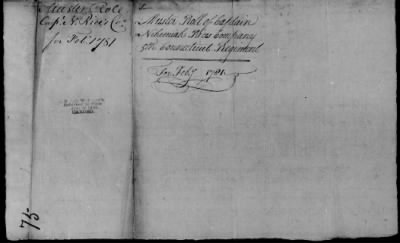 Muster Role
Capt N Rices Co
for Feb 1781
Muster Roll of Captain
Nehemiah Rices Company
5th Connecticut Regiment
For Feby 1781
75